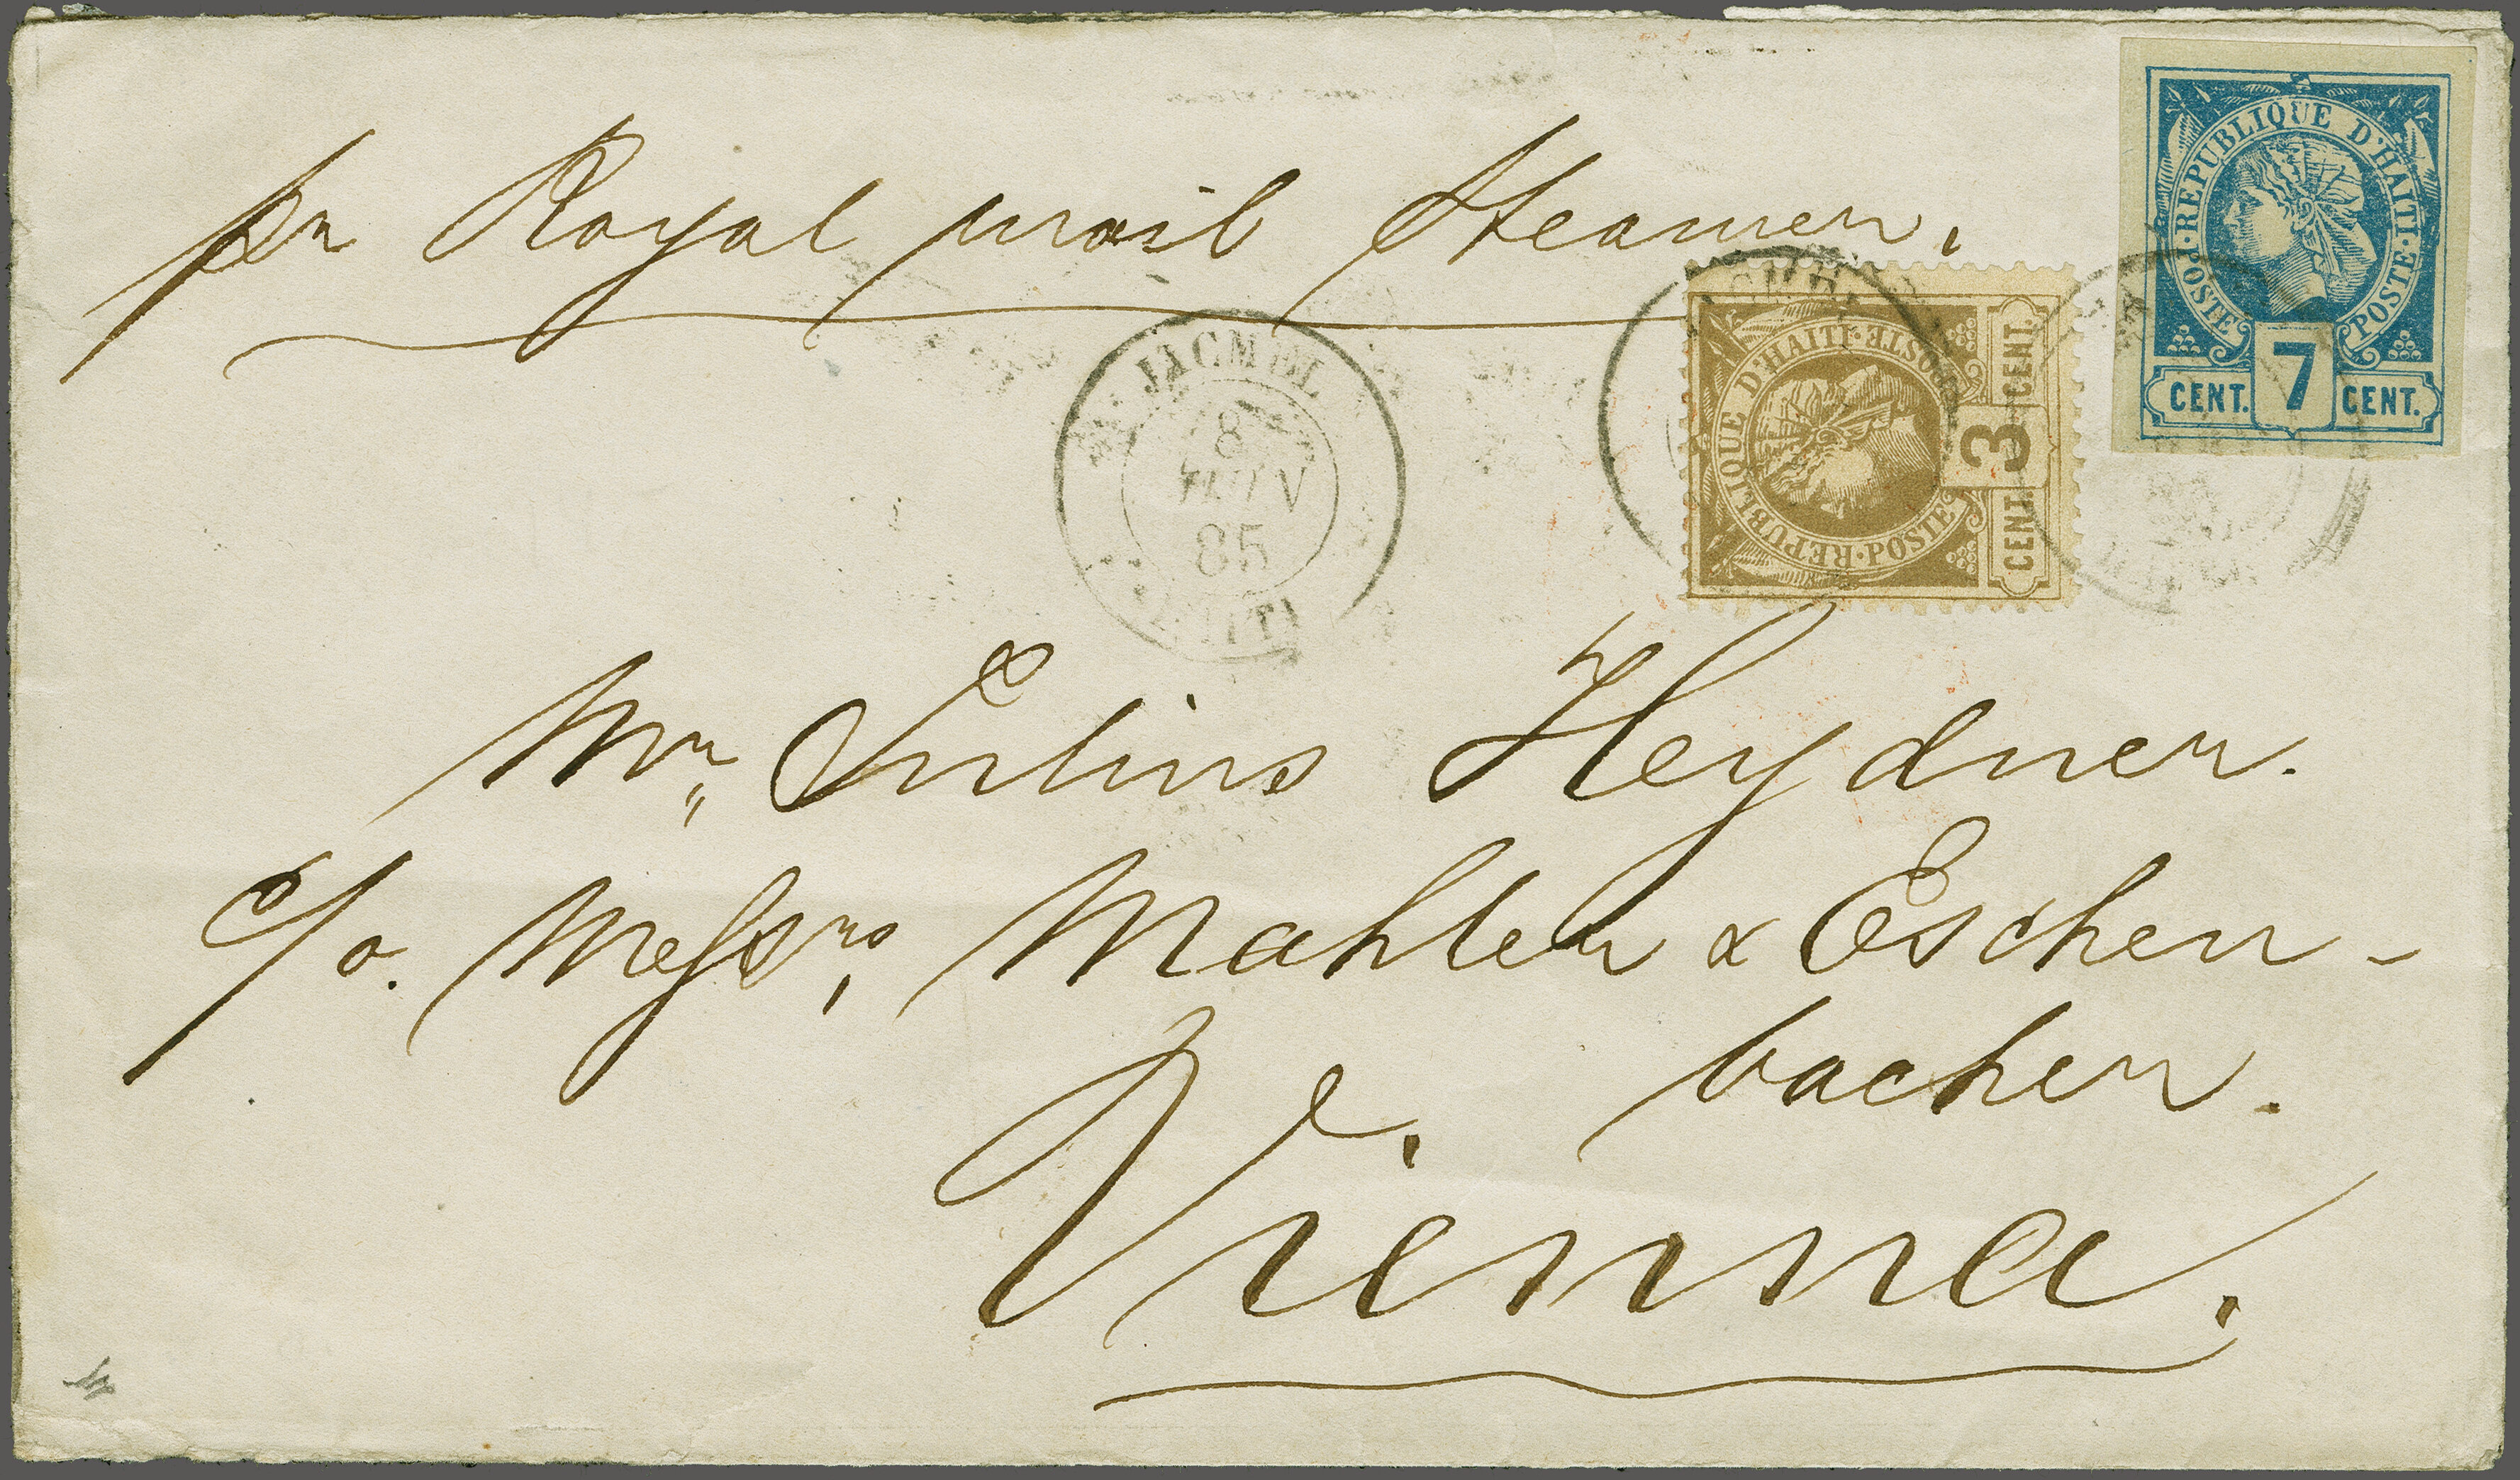 pr Royal mail Steamer.
REPUBLIQUE D'HAITI
POSTE POSTE
CENT. 7 CENT.
REPUBLIQUE D'HAITI
POSTE POSTE
CENT. 3 CENT.
JACMEL
8
85
HAITI
Mr. Julius Heydner.
c/o. Messrs, Mahler & Eschen-
bacher.
Vienna.